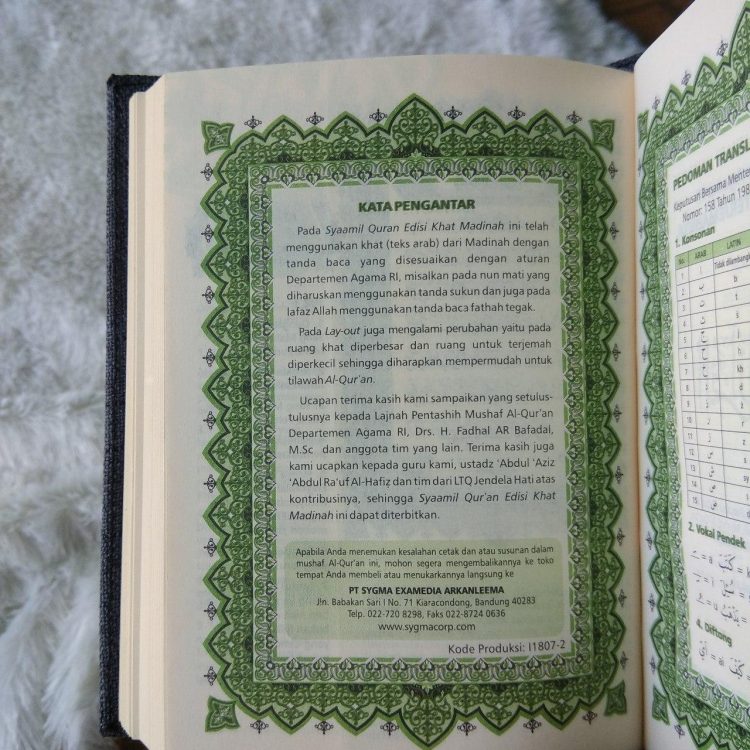 KATA PENGANTAR
Pada Syaamil Quran Edisi Khat Madinah ini telah
menggunakan khat (teks arab) dari Madinah dengan
tanda baca yang disesuaikan dengan aturan
Departemen Agama RI, misalkan pada nun mati yang
diharuskan menggunakan tanda sukun dan juga pada
lafaz Allah menggunakan tanda baca fathah tegak.
Pada Lay-out juga mengalami perubahan yaitu pada
ruang khat diperbesar dan ruang untuk terjemah
diperkecil sehingga diharapkan mempermudah untuk
tilawah Al-Qur'an.
Ucapan terima kasih kami sampaikan yang setulus-
tulusnya kepada Lajnah Pentashih Mushaf Al-Qur'an
Departemen Agama RI, Drs. H. Fadhal AR Bafadal,
M.Sc dan anggota tim yang lain. Terima kasih juga
kami ucapkan kepada guru kami, ustadz 'Abdul 'Aziz
'Abdul Ra'uf Al-Hafiẓ dan tim dari LTQ Jendela Hati atas
kontribusinya, sehingga Syaamil Qur'an Edisi Khat
Madinah ini dapat diterbitkan.
Apabila Anda menemukan kesalahan cetak dan atau susunan dalam
mushaf Al-Qur'an ini, mohon segera mengembalikannya ke toko
tempat Anda membeli atau menukarkannya langsung ke
PT SYGMA EXAMEDIA ARKANLEEMA
Jln. Babakan Sari I No. 71 Kiaracondong, Bandung 40283
Telp. 022-720 8298, Faks 022-8724 0636
www.sygmacorp.com
Kode Produksi: I1807-2
PEDOMAN
Keputusan Bersama
Nomor: 158 Tahun
1. Konsonan
No. ARAB LATIN
1 ا Tidak
2 ب b
3 ت t
4
5 ج j
6 ح
7 خ kh
8 د d
9
10 ر r
11 ز z
12 س s
13 ش sy
14 ص
15 ض
2. Vokal Pendek
4. Diftong